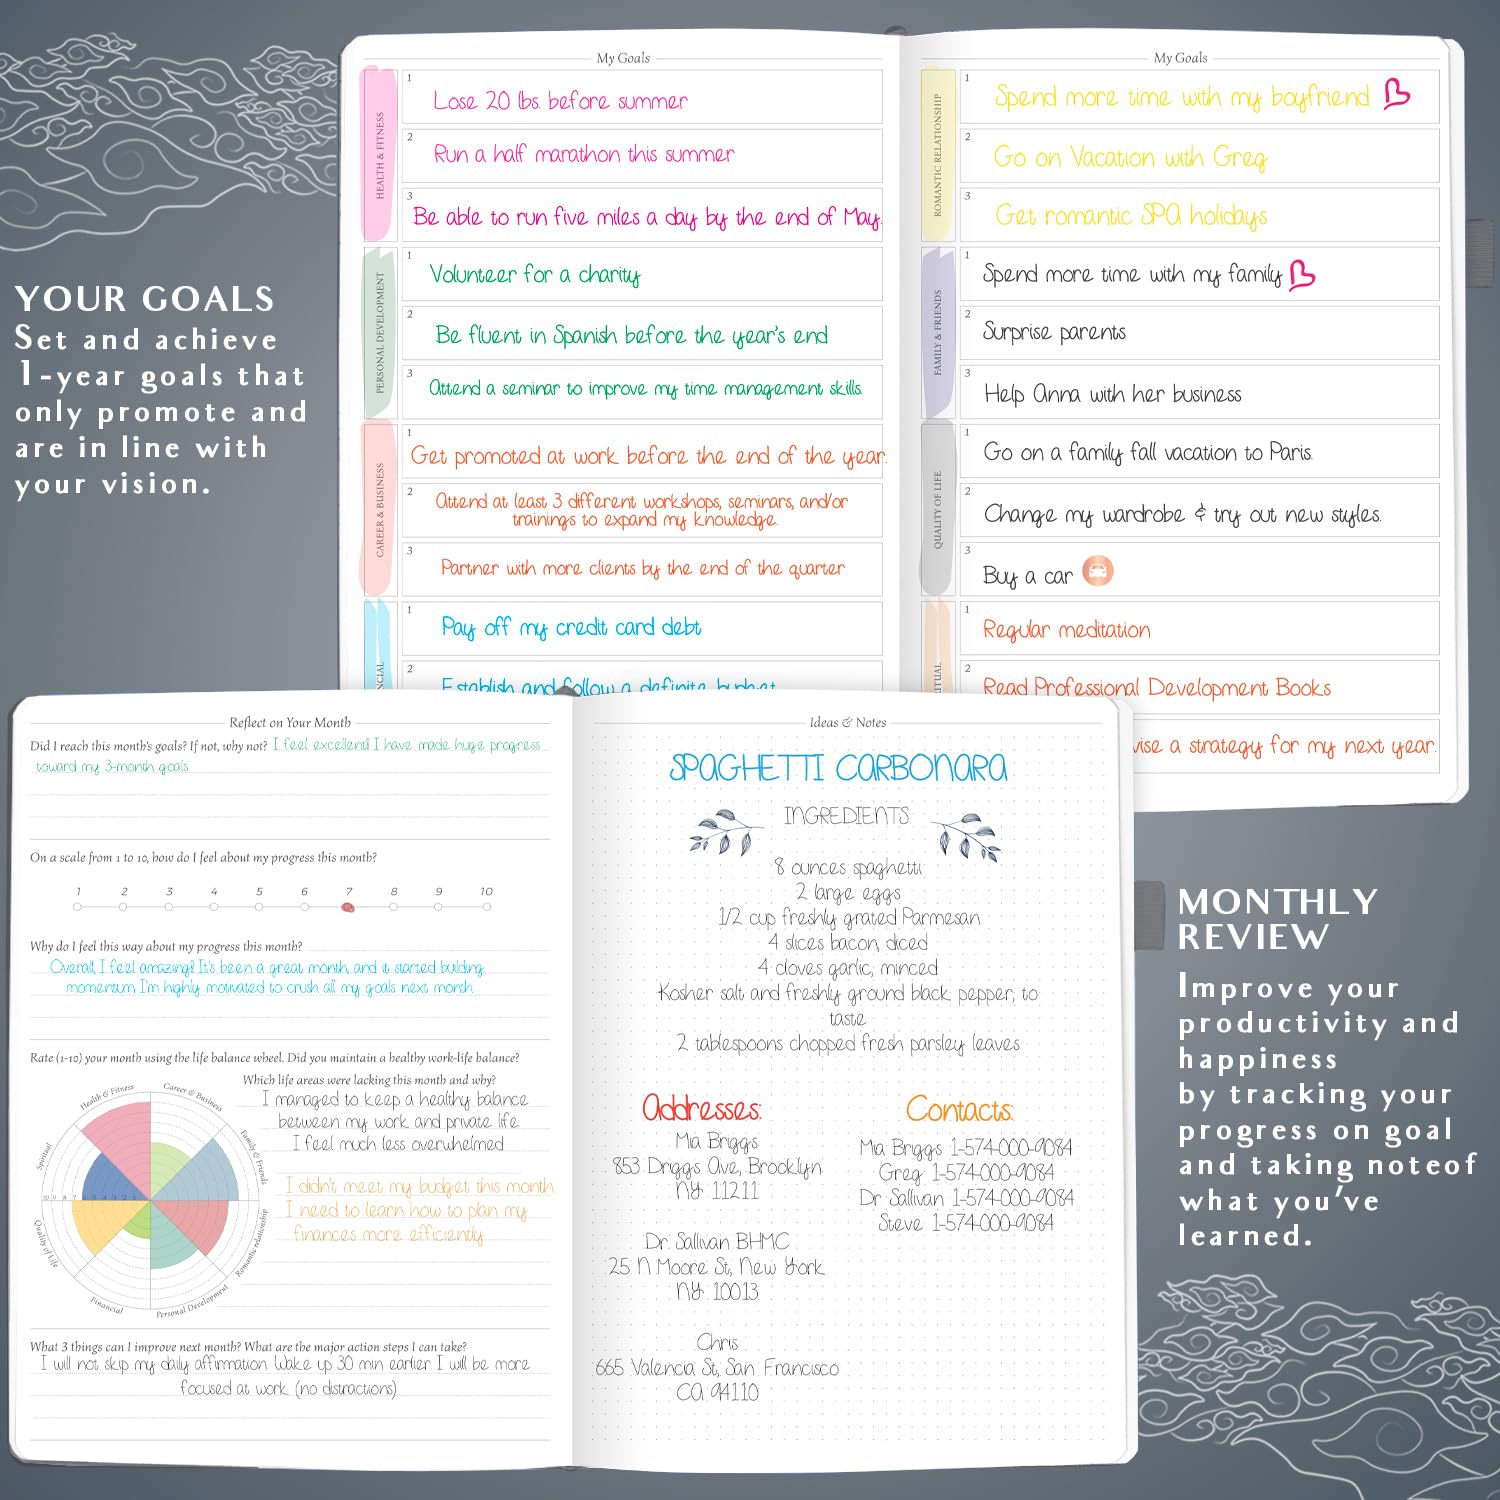 My Goals
HEALTH & FITNESS
1
Lose 20 lbs. before summer
2
Run a half marathon this summer
3
Be able to run five miles a day by the end of May.
PERSONAL DEVELOPMENT
1
Volunteer for a charity
2
Be fluent in Spanish before the year's end
3
Attend a seminar to improve my time management skills.
CAREER & BUSINESS
1
Get promoted at work before the end of the year.
2
Attend at least 3 different workshops, seminars, and/or
trainings to expand my knowledge.
3
Partner with more clients by the end of the quarter
1
Pay off my credit card debt
2
Establish and follow a definite budget
My Goals
ROMANTIC RELATIONSHIP
1
Spend more time with my boyfriend
2
Go on Vacation with Greg
3
Get romantic SPA holidays
FAMILY & FRIENDS
1
Spend more time with my family
2
Surprise parents
3
Help Anna with her business
QUALITY OF LIFE
1
Go on a family fall vacation to Paris.
2
Change my wardrobe & try out new styles.
3
Buy a car
1
Regular meditation
2
Read Professional Development Books
vise a strategy for my next year.
YOUR GOALS
Set and achieve
1-year goals that
only promote and
are in line with
your vision.
Reflect on Your Month
Did I reach this month's goals? If not, why not? I feel excellent! I have made huge progress
toward my 3-month goals
On a scale from 1 to 10, how do I feel about my progress this month?
1 2 3 4 5 6 7 8 9 10
Why do I feel this way about my progress this month?
Overall, I feel amazing! It's been a great month, and it started building
momentum. I'm highly motivated to crush all my goals next month.
Rate (1-10) your month using the life balance wheel. Did you maintain a healthy work-life balance?
Health & Fitness
Career & Business
Family & Friends
Romantic relationship
Personal Development
Financial
Quality of Life
Spiritual
10 9 8 7 6 5 4 3 2 1
Which life areas were lacking this month and why?
I managed to keep a healthy balance
between my work and private life
I feel much less overwhelmed
I didn't meet my budget this month
I need to learn how to plan my
finances more efficiently
What 3 things can I improve next month? What are the major action steps I can take?
I will not skip my daily affirmation. Wake up 30 min earlier. I will be more
focused at work (no distractions)
Ideas & Notes
SPAGHETTI CARBONARA
INGREDIENTS
8 ounces spaghetti
2 large eggs
1/2 cup freshly grated Parmesan
4 slices bacon, diced
4 cloves garlic, minced
Kosher salt and freshly ground black pepper, to
taste
2 tablespoons chopped fresh parsley leaves
Addresses:
Mia Briggs
853 Driggs Ave, Brooklyn
NY 11211
Dr. Sallivan BHMC
25 N Moore St, New York
NY 10013
Chris
665 Valencia St, San Francisco
CA 94110
Contacts:
Mia Briggs 1-574-000-9084
Greg 1-574-000-9084
Dr Sallivan 1-574-000-9084
Steve 1-574-000-9084
MONTHLY
REVIEW
Improve your
productivity and
happiness
by tracking your
progress on goal
and taking noteof
what you've
learned.